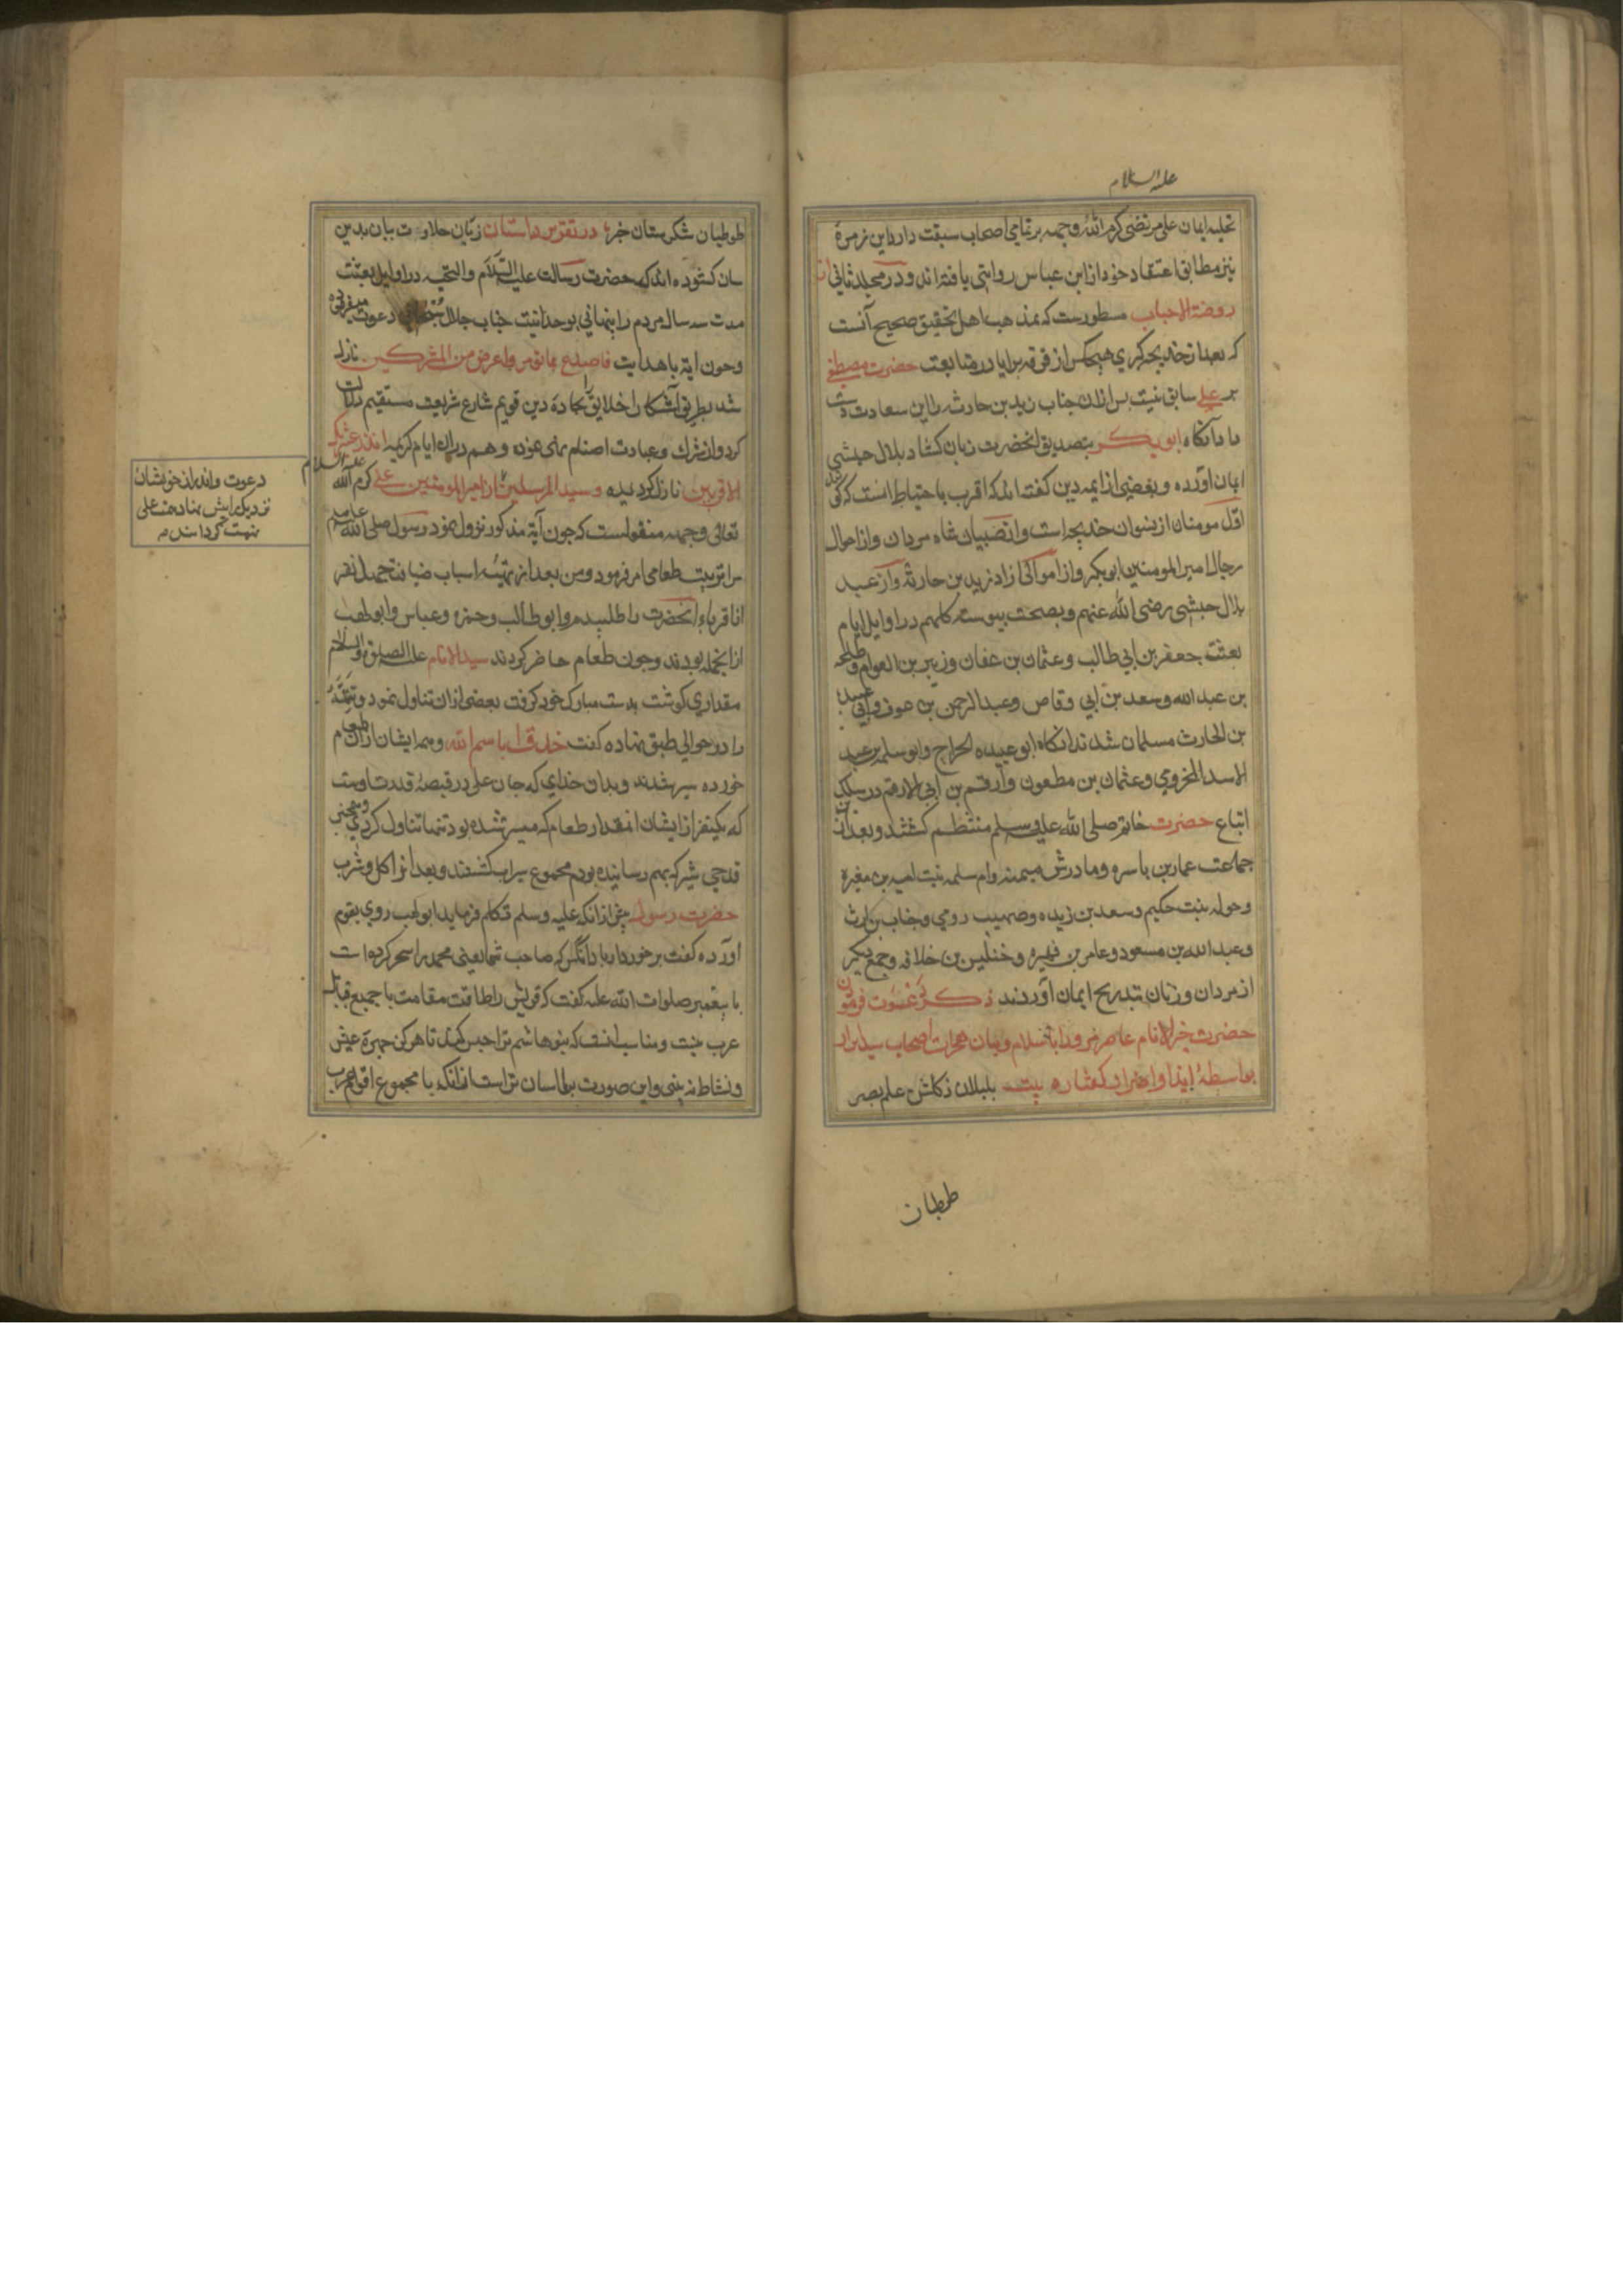 علیه السلام
تحلیه ایمان علی مرتضی کرم الله وجهه بر تمامی اصحاب سبقت دارد این زمرهٔ
نیز مطابق اعتقاد خود از ابن عباس روایتی یافته اند و در مجلد ثانی از
روضة الاحباب مسطورست که بمذهب اهل تحقیق صحیح آنست
که بعد از خدیجه کبری هیچکس از فرقه برایا در متابعت حضرت مصطفی
بر علی سابق نیست پس ازان جناب زید بن حارثه را این سعادت دست
داد آنکاه ابو بکر بتصدیق انحضرت زبان کشاد بلال حبشی
ایمان اورده و بعضی از ایمه دین کفته اند که اقرب باحتیاط انست که کویند
اول مومنان از نسوان خدیجه است و از صبیان شاه مردان و از احوال
رجال امیر المومنین ابو بکر و از موالی ازاد زید بن حارثه و از عبید
بلال حبشی رضی الله عنهم و بصحت پیوسته که هم در اوایل ایام
بعثت جعفر بن ابی طالب و عثمان بن عفان و زبیر بن العوام و طلحه
بن عبد الله و سعد بن ابی وقاص و عبد الرحمن بن عوف و ابی عبید
بن الحارث مسلمان شدند انکاه ابو عبیده الجراح و ابو سلمه بن عبد
الاسد المخزومی و عثمان بن مطعون و ارقم بن ابی الارقم در سلک
اتباع حضرت خاتم صلی الله علیه وسلم منتظم کشتند و بعد از ان
جماعت عمار بن یاسر و مادرش سمیه و ام سلمه بنت امیه بن مغیرة
و خوله بنت حکیم و سعد بن زیده و صهیب رومی و خباب بن ارث
و عبد الله بن مسعود و عامر بن فهیره و خنیس بن خلافه و جمع دیکر
از مردان و زنان بتدریج ایمان آوردند ذکر دعوت فرمودن
حضرت خیر الانام خاص و عام را باسلام و بیان هجرات اصحاب سید ابرار
بواسطهٔ ایذا و اضرار کفار بیت بلبلان ز کلشن علم بصر
طوطیان
طوطیان شکرستان خبر در تقریر داستان زبان حلاوت بیان بدین
سان کشوده اند که حضرت رسالت علیه السلام والتحیه در اوایل بعثت
مدت سه سال مردم را پنهانی بوحدانیت جناب جلال سبحانی دعوت میفرمود
و چون آیة با هدایت فاصدع بما تؤمر و اعرض عن المشرکین نازل
شد بطریق آشکار اخلایق بجادهٔ دین قویم شارع شریعت مستقیم دلالت
کرد و از شرک و عبادت اصنام نهی نموده و هم دران ایام کریمه انذر عشیرتک
الاقربین نازل کردیده و سید المرسلین از امیر المومنین علی کرم الله
علیه السلام
تعالی وجهه منقولست که چون آیة مذکور نزول نمود رسول صلی الله علیه وسلم
مرا بترتیب طعامی امر فرمود و من بعد از تهیه اسباب ضیافت چهل نفر
از اقرباء انحضرت را طلبیدم و ابو طالب و حمزه و عباس و ابو لهب
از انجمله بودند و چون طعام حاضر کردند سید الانام علیه الصلوة والسلام
مقداری کوشت بدست مبارک خود کرفت بعضی ازان تناول نمود و تتمه
را در حوالی طبق نهاده کفت خذوا باسم الله و همه ایشان ازان طعام
خورده سیر شدند و بدان خدای که جان علی در قبضهٔ قدرت اوست
که یکنفر از ایشان انمقدار طعام که میسر شده بود تنها تناول کردی و همچنین
قدحی شیر که بهم رسانیده بودم مجموع سیراب کشتند و بعد از اکل و شرب
حضرت رسول پیش ازانکه علیه وسلم تکلم فرماید ابو لهب روی بقوم
اورده کفت برخوردار باد انکس که صاحب شما یعنی محمد را سحر کرده است
با پیغمبر صلوات الله علیه کفت که قریش را طاقت مقاومت با جمیع قبائل
عرب نیست و مناسب انست که بنو هاشم ترا حبس کنند تا هرکز چهرهٔ عیش
و نشاط نه بینی و این صورت بر ما اسان تر است ازانکه با مجموع اقوام عرب
دعوت و انذران خویشان
نزدیک